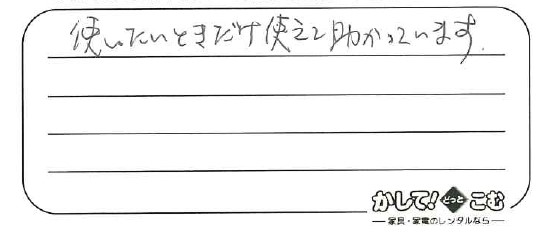 使いたいときだけ使えて助かっています。
かして!どっとこむ
家具・家電のレンタルなら